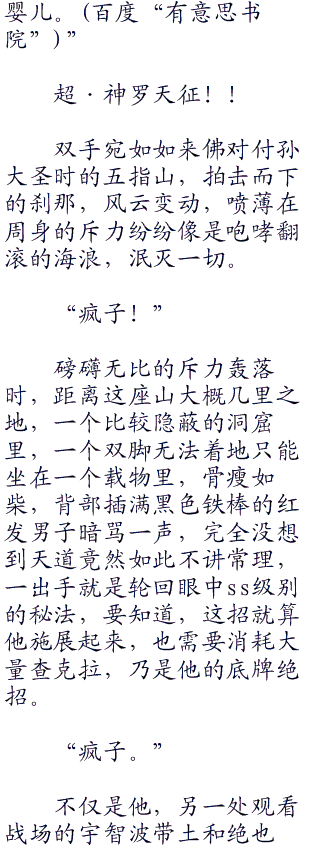 婴儿。(百度“有意思书
院”)”
超·神罗天征！！
双手宛如如来佛对付孙
大圣时的五指山，拍击而下
的刹那，风云变动，喷薄在
周身的斥力纷纷像是咆哮翻
滚的海浪，泯灭一切。
“疯子！”
磅礴无比的斥力轰落
时，距离这座山大概几里之
地，一个比较隐蔽的洞窟
里，一个双脚无法着地只能
坐在一个载物里，骨瘦如
柴，背部插满黑色铁棒的红
发男子暗骂一声，完全没想
到天道竟然如此不讲常理，
一出手就是轮回眼中ss级别
的秘法，要知道，这招就算
他施展起来，也需要消耗大
量查克拉，乃是他的底牌绝
招。
“疯子。”
不仅是他，另一处观看
战场的宇智波带土和绝也